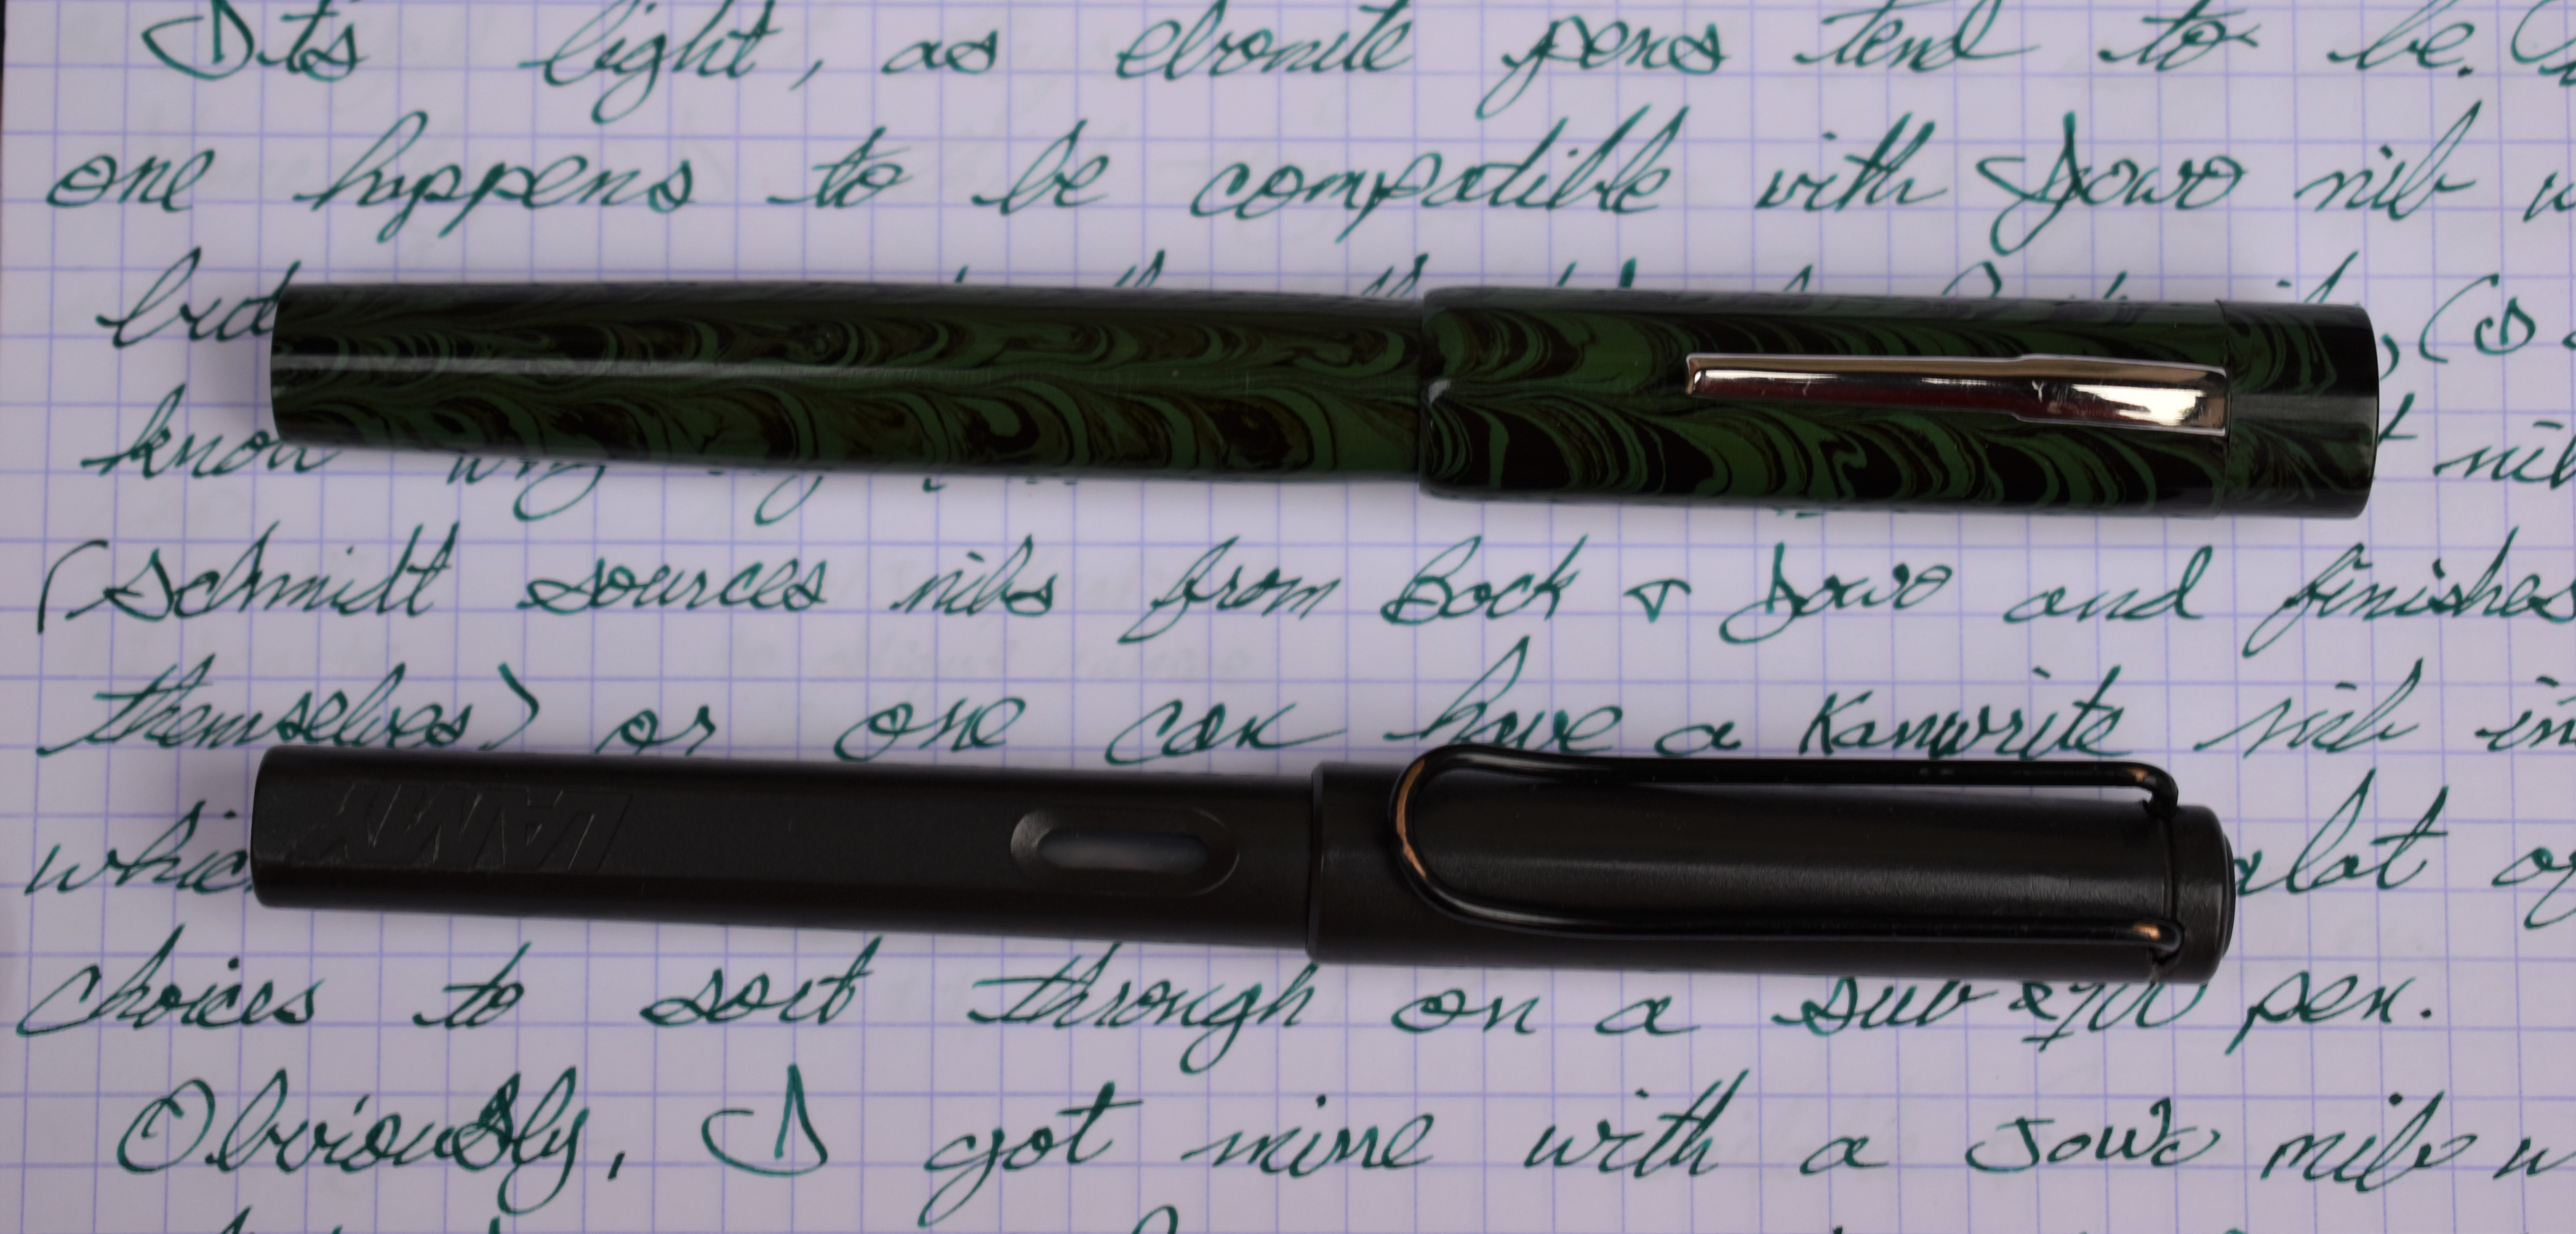 Its light, as ebonite pens tend to be.
one happens to be compatible with Jowo nib
but
know why
nib
(Schmidt sources nibs from Bock & Jowo and finishes
themselves) or one can have a Kanwrite nib in
LAMY
alot
choices to sort through on a sub pen.
Obviously, I got mine with a Jowo nib